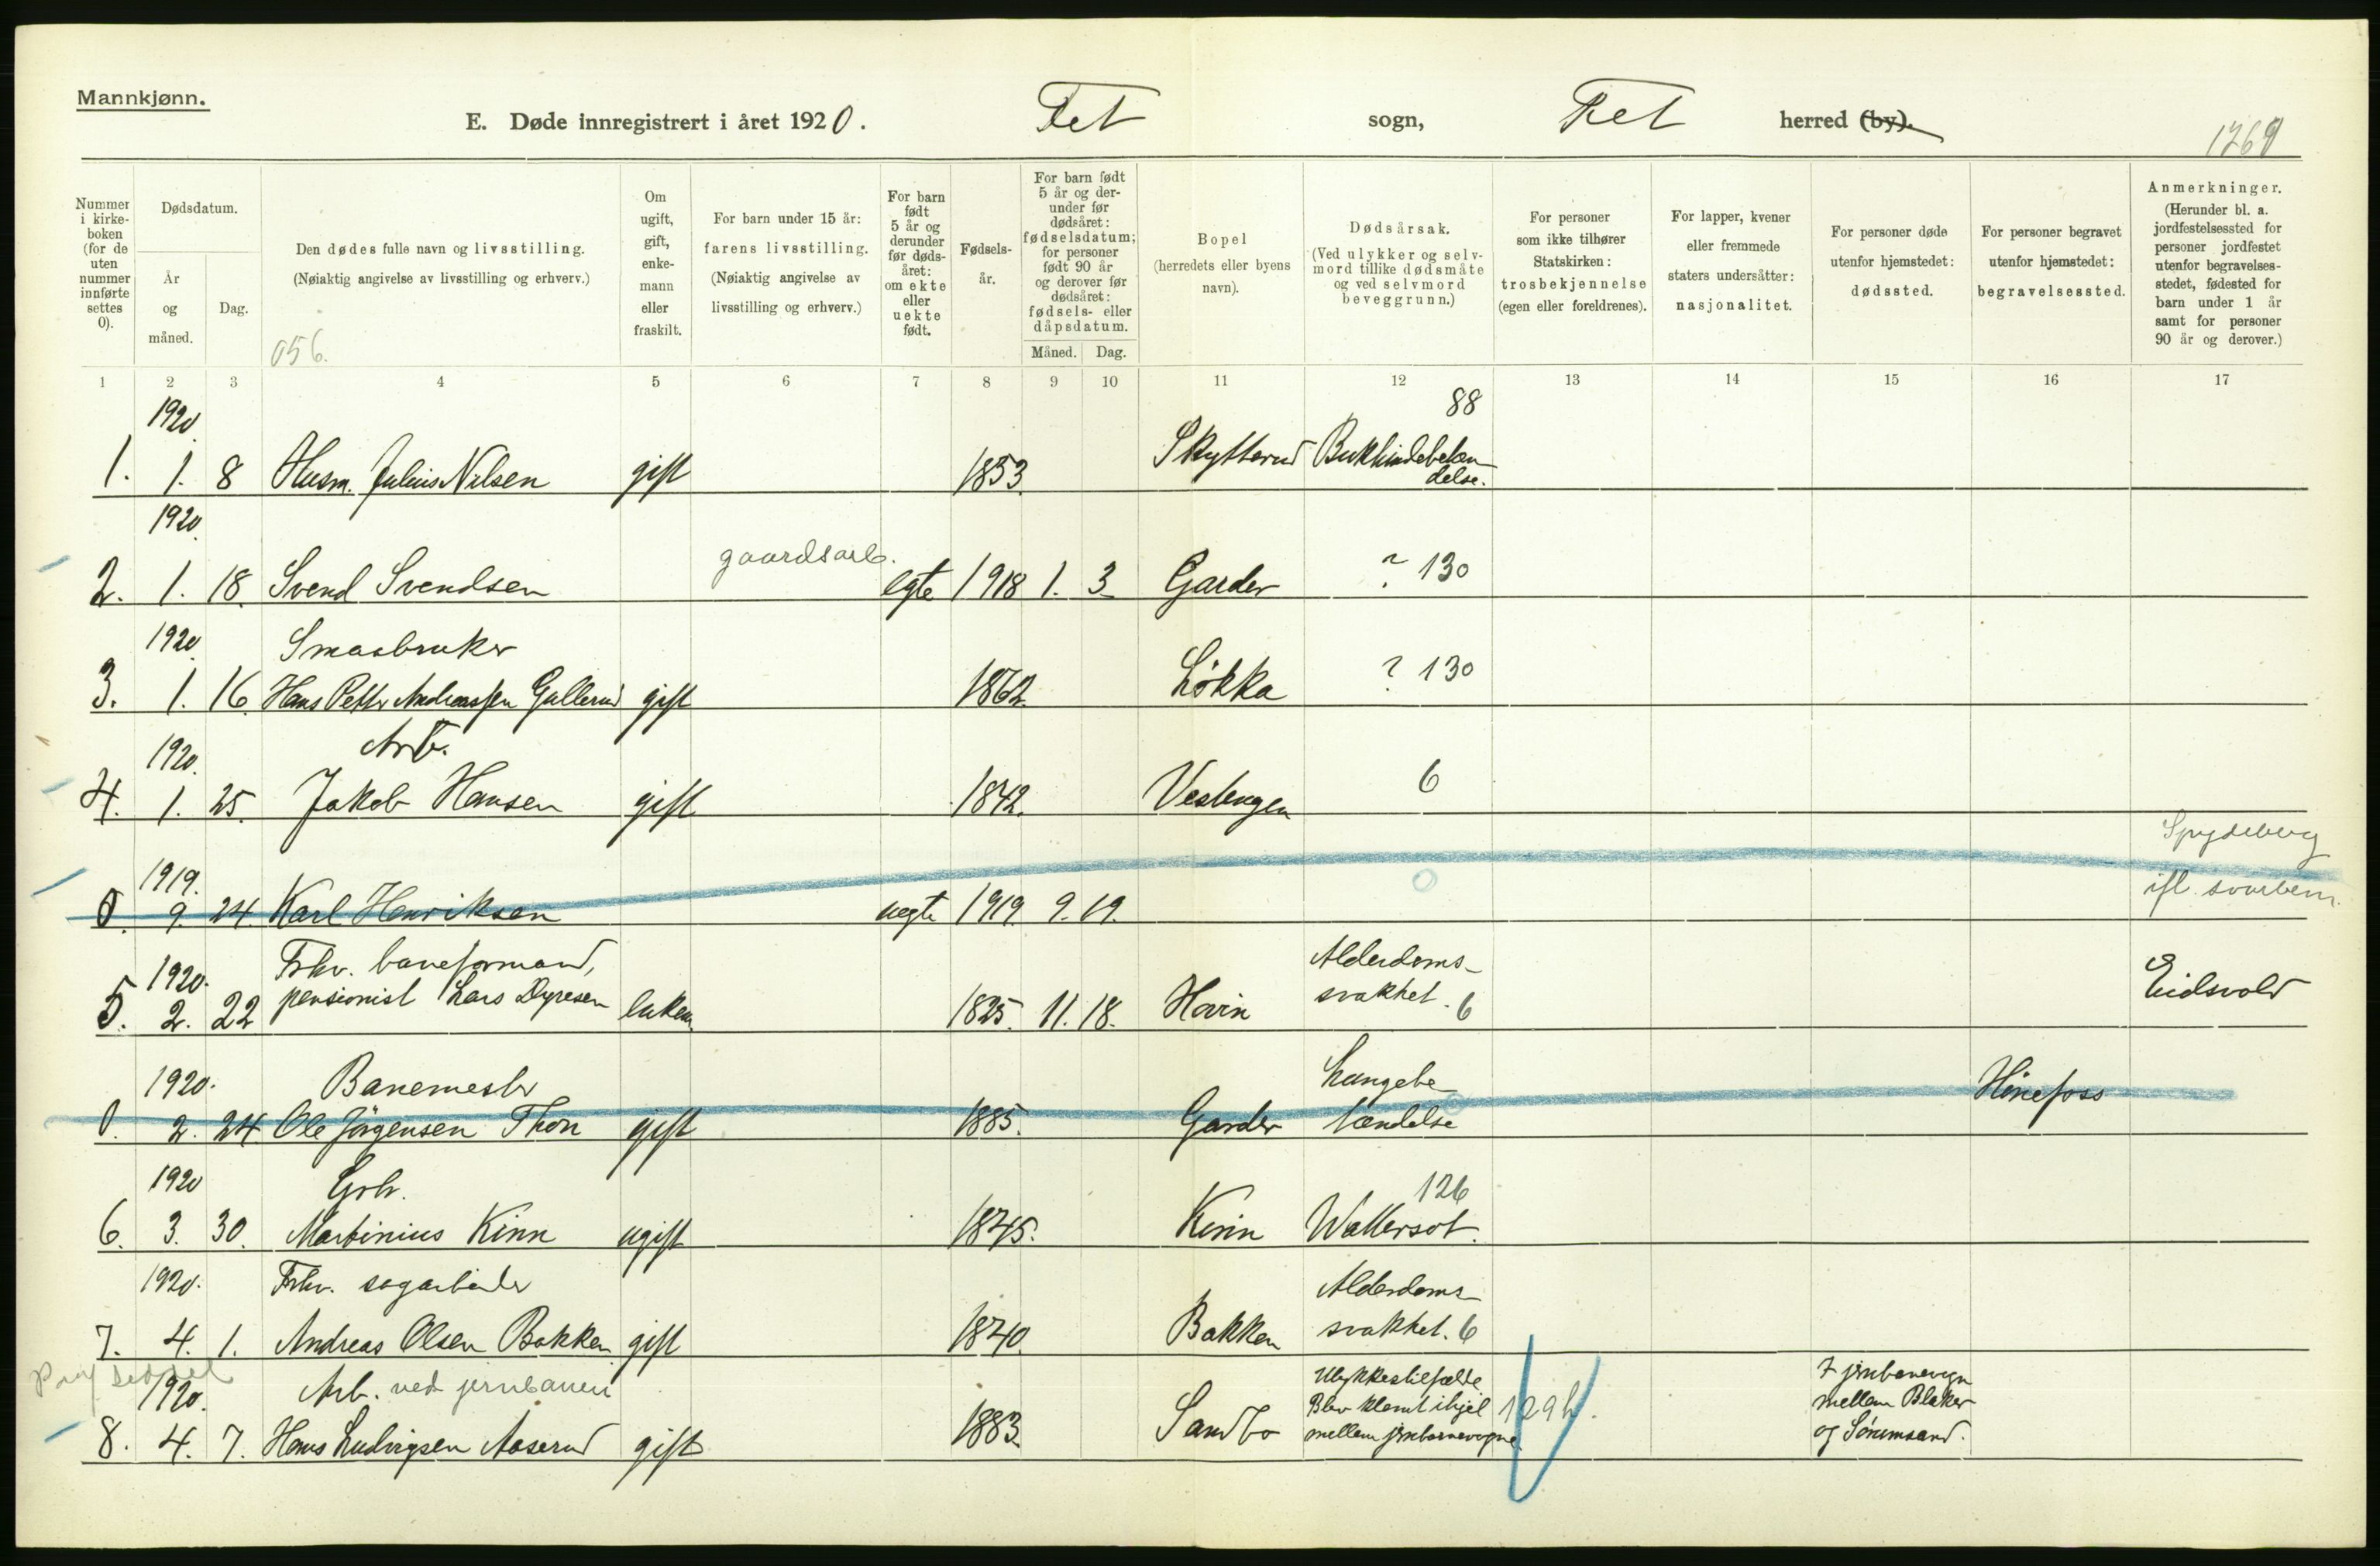 Mannkjønn.
E. Døde innregistrert i året 1920. Fet sogn, Fet herred (by).
Nummer i kirke- boken (for de uten nummer innførte settes 0).
Dødsdatum.
År og måned.
Dag.
Den dødes fulle navn og livsstilling.
(Nøiaktig angivelse av livsstilling og erhverv.)
056.
Om ugift, gift, enke- mann eller fraskilt.
For barn under 15 år: farens livsstilling. (Nøiaktig angivelse av livsstilling og erhverv.)
For barn født 5 år og derunder før døds- året: om ekte eller uekte født.
Fødsels- år.
For barn født 5 år og der- under før dødsåret: fødselsdatum; for personer født 90 år og derover før dødsåret: fødsels- eller dåpsdatum.
Måned. Dag.
Bopel (herredets eller byens navn).
Dødsårsak. (Ved ulykker og selv- mord tillike dødsmåte og ved selvmord beveggrunn.)
For personer som ikke tilhører Statskirken: trosbekjennelse (egen eller foreldrenes).
For lapper, kvener eller fremmede staters undersåtter: nasjonalitet.
For personer døde utenfor hjemstedet: dødssted.
For personer begravet utenfor hjemstedet: begravelsessted.
Anmerkninger. (Herunder bl. a. jordfestelsessted for personer jordfestet utenfor begravelses- stedet, fødested for barn under 1 år samt for personer 90 år og derover.)
1 2 3 4 5 6 7 8 9 10 11 12 13 14 15 16 17
1920 88
1. 1. 8 Husm. Julius Nilsen gift 1853. Skytterud Bukhindebetæn-
delse.
1920. gaardsarb.
2. 1. 18. Svend Svendsen egte 1918 1. 3 Garder ? 130
1920 Smaabruker
3. 1. 16. Hans Petter Andreassen Gullerud gift 1862. Løkka ? 130
1920. Arb.
4. 1. 25. Jakob Hansen gift 1842. Vestengen 6
1919. Spydeberg
0. 9. 24. Karl Henriksen uegte 1919. 9. 19. ifl.
1920. Frhv. baneformand, Alderdoms-
5. 2. 22 pensionist Lars Dyresen enkem. 1825. 11. 18. Hovin svakhet. 6 Eidsvold
1920. Banemester Lungebe-
0. 2. 24 Ole Jörgensen Thon gift 1885. Garder tændelse Hönefoss
1920 Grbr. 126
6. 3. 30. Martinius Kinn ugift 1845. Kinn Wattersot.
1920. Frhv. sagarbeider Alderdoms-
7. 4. 1. Andreas Olsen Bakken gift 1840. Bakken svakhet. 6
1920. Arb. ved jernbanen Ulykkestilfælde I jernbanevogn
Blev klemt ihjel 129 mellem Blaker
8. 4. 7. Hans Ludvigsen Aaserud gift 1883. Sandbo mellem jernbanevogne og Sörumsand.